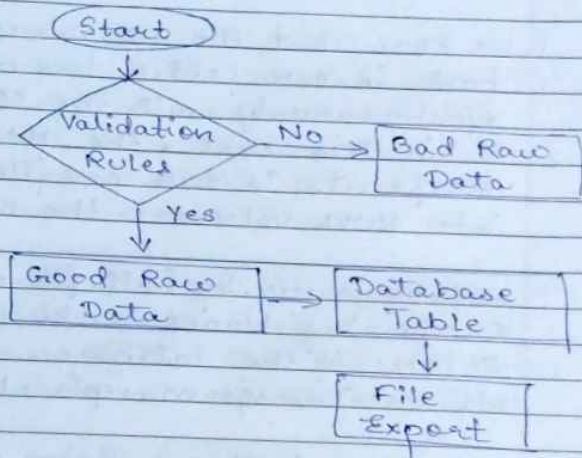 Start
Validation
Rules
No
Bad Raw
Data
Yes
Good Raw
Data
Database
Table
File
Export